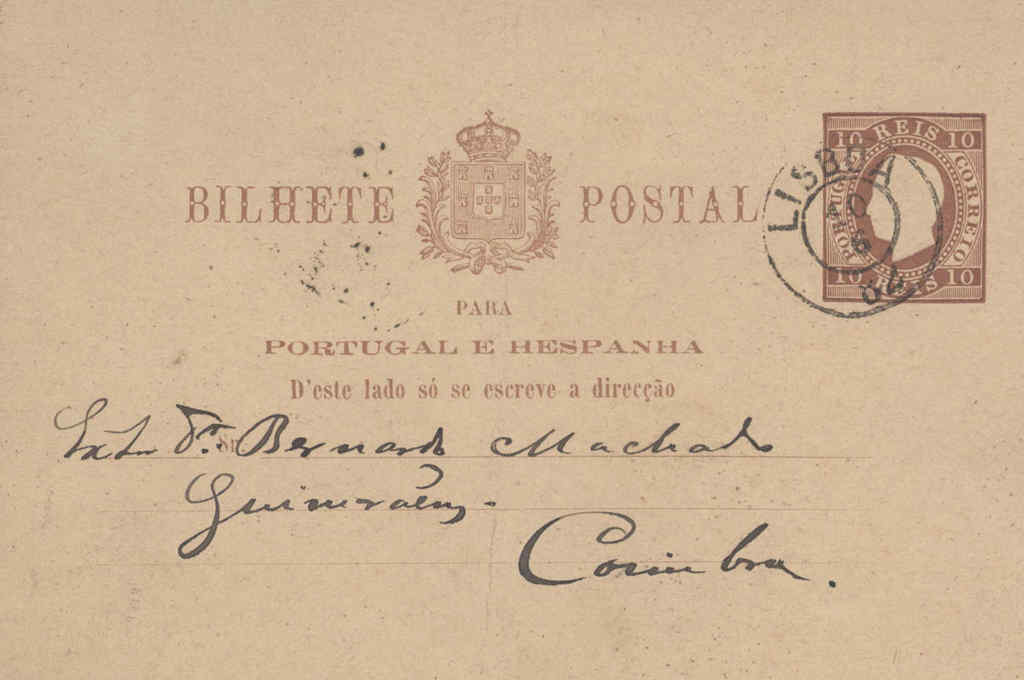 BILHETE POSTAL
PARA
PORTUGAL E HESPANHA
D'este lado só se escreve a direcção
10 REIS 10
PORTUGAL
CORREIO
10 REIS 10
LISBOA
10
Sr. Bernardo Machado
Guimarães.
Coimbra.